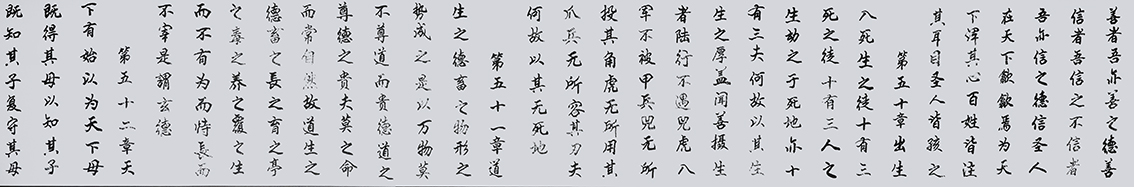 善者吾亦善之德善
信者善信之不信者
吾亦信之德信圣人
在天下歙歙焉为天
下浑其心百姓皆注
其耳目圣人皆孩之
第五十章出生
入死生之徒十有三
死之徒十有三人之
生动之于死地亦十
有三夫何故以其生
生之厚盖闻善摄生
者陆行不遇兕虎入
军不被甲兵兕无所
投其角虎无所用其
爪兵无所容其刃夫
何故以其无死地
第五十一章道
生之德畜之物形之
势成之是以万物莫
不尊道而贵德道之
尊德之贵夫莫之命
而常自然故道生之
德畜之长之育之亭
之毒之养之覆之生
而不有为而恃长而
不宰是谓玄德
第五十二章天
下有始以为天下母
既得其母以知其子
既知其子复守其母